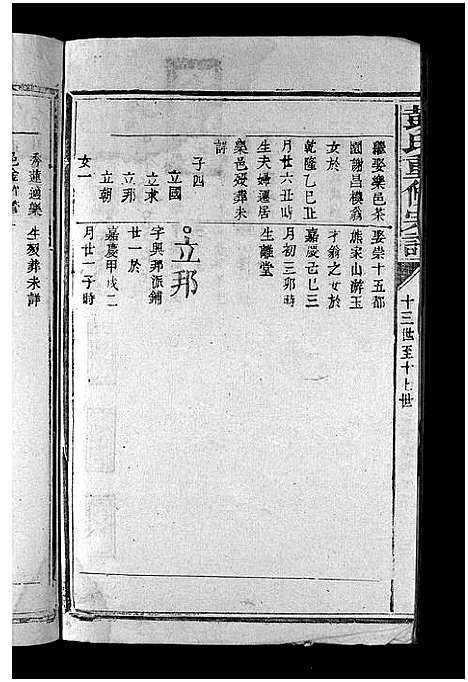 黃氏重修宗譜
十三世至十七世
繼娶樂邑茶
園謝昌模翁
女於
乾隆乙巳正
月廿六丑時
生夫婦遷居
樂邑歿葬未
詳
子四
立國
立東
立邦
立朝
女一
娶崇十五都
熊家山湖玉
才翁之女於
嘉慶己巳三
月初三卯時
生離堂
立邦
字興邦派鋪
廿一於
嘉慶甲戌二
月廿二子時
秀蓮適樂
生歿葬未詳